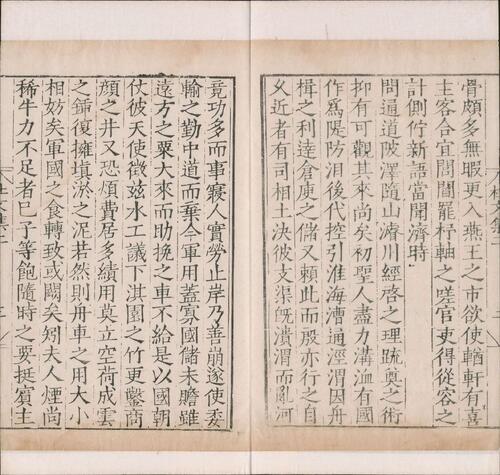 骨頗多無暇更入燕王之市欲使輶軒有喜
主客合宜閭閻罷杼軸之嗟官吏得從容之
計側佇新語當聞濟時
問道陂澤隨山濬川經啓之理疏奠之術
抑有可觀其來尚矣初聖人盡力溝洫有國
作爲隄防洎後代控引淮海漕通涇渭因舟
楫之利達倉庾之儲又賴此而殷亦行之自
久近者有司相土決彼支渠旣潰渭而亂河
竟功多而事寢人實勞止岸乃善崩遂使委
輸之勤中道而棄今軍用蓋寡國儲未贍雖
遠方之粟大來而助挽之車不給是以國朝
仗彼天使徵茲水工議下淇園之竹更鑿商
顔之井又恐煩費居多績用莫立空荷成雲
之鍤復擁塡淤之泥若然則舟車之用大小
相妨矣軍國之食轉致或闕矣矧夫人煙尚
稀牛力不足者已子等飽隨時之要挺賓主